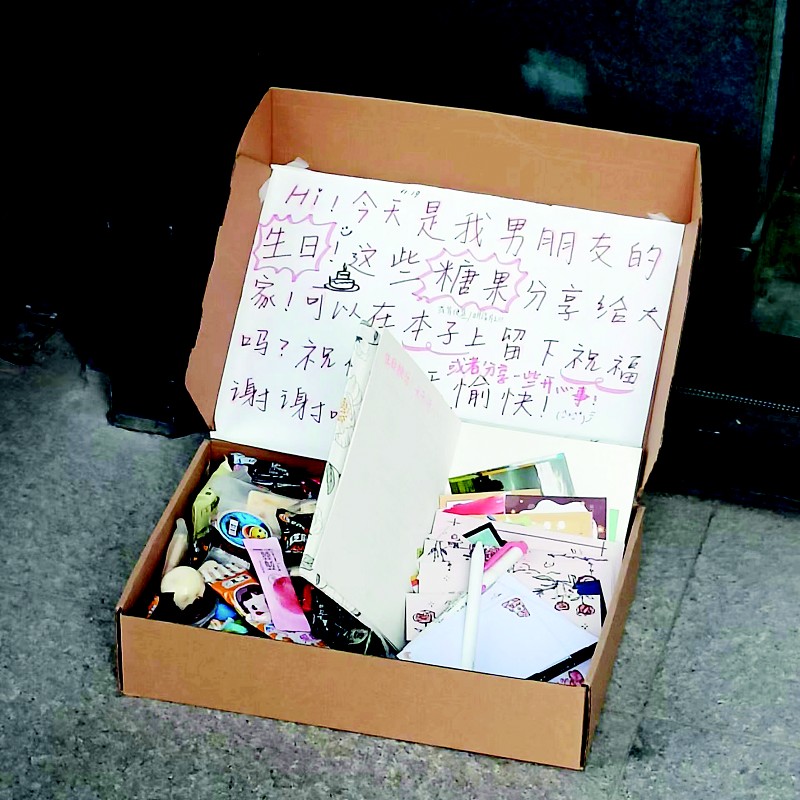 11.19
Hi! 今天是我男朋友的
生日! 这些糖果分享给大
家! 可以在本子上留下祝福
或者分享一些开心事!
吗? 祝 愉快!
谢谢